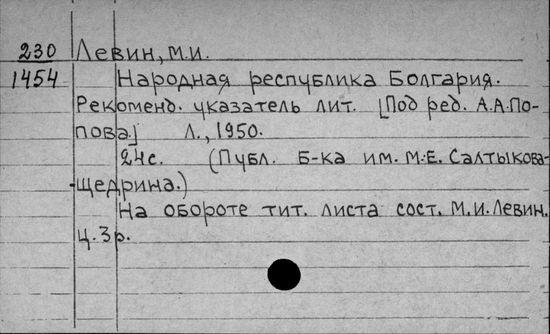 230 Левин, М.И.
1454 Народная республика Болгария.
Рекоменд. указатель лит. [Под ред. А.А.По-
пова.] Л., 1950.
24с. (Публ. б-ка им. М.Е. Салтыкова-
-Щедрина.)
На обороте тит. листа сост. М.И.Левин.
Ц. 3 р.